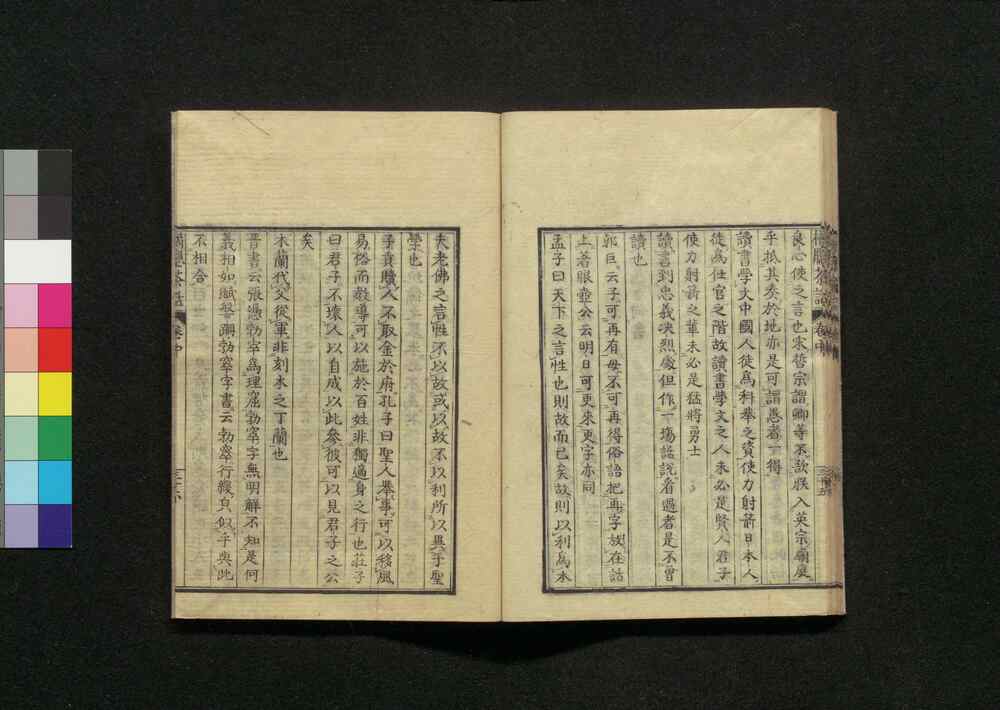 良心使之言也宋哲宗謂卿等不欲朕入英宗廟庭
乎抵其奏於地亦是可謂愚者一得
讀書學文中國人徒爲科舉之資使刀射箭日本人
徒爲仕官之階故讀書學文之人未必是賢人君子
使刀射箭之輩未必是猛將勇士
讀書到忠義决烈處但作一塲話說看過者是不曾
讀也
郭巨云子可再有母不可再得俗語把再字放在話
上著眼壺公云明日可更來更字亦同
孟子曰天下之言性也則故而已矣故則以利爲本
夫老佛之言性不以故或以故不以利所以異于聖
學也
子貢贖人不取金於府孔子曰聖人舉事可以移風
易俗而敎導可以施於百姓非獨適身之行也莊子
曰君子不壞人以自成以此參彼可以見君子之公
矣
木蘭代父從軍非刻木之丁蘭也
晋書云張憑勃窣爲理窟勃窣字無明解不知是何
義相如賦媻姍勃窣字書云勃窣行緩皃似乎與此
不相合
茶話 卷中